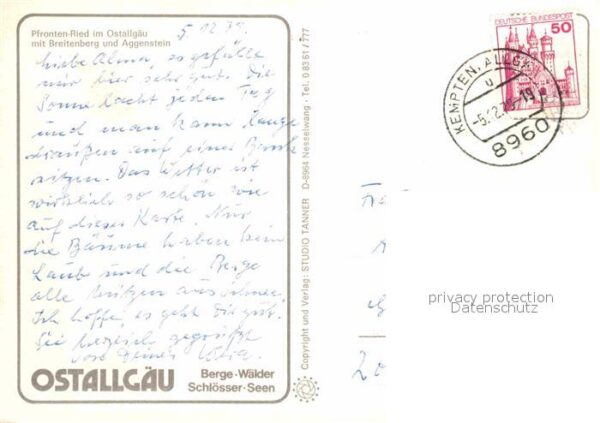 Pfronten-Ried im Ostallgäu
mit Breitenberg und Aggenstein
5.12.79
Liebe Alma, es gefällt
mir hier sehr gut. Die
Sonne lacht jeden Tag
und man kann lange
draußen auf einer Bank
sitzen. Das Wetter ist
wirklich so schön wie
auf dieser Karte. Nur
die Bäume haben kein
Laub und die Berge
alle Mützen aus Schnee.
Ich hoffe, es geht Dir gut.
Sei herzlich gegrüßt
von Deiner
OSTALLGÄU
Berge · Wälder
Schlösser · Seen
Copyright und Verlag: STUDIO TANNER D-8964 Nesselwang · Tel. 0 83 61 / 777
DEUTSCHE BUNDESPOST
50
KEMPTEN, ALLGÄU
8960
privacy protection
Datenschutz